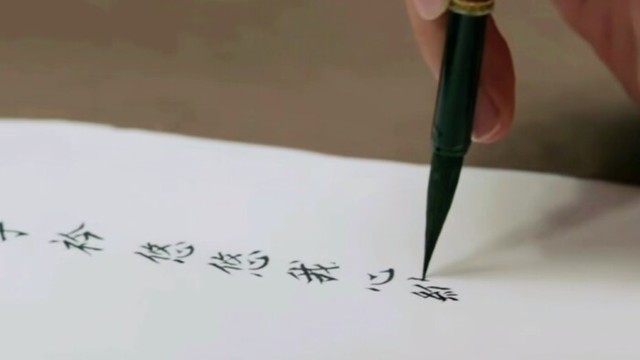 子衿悠悠我心